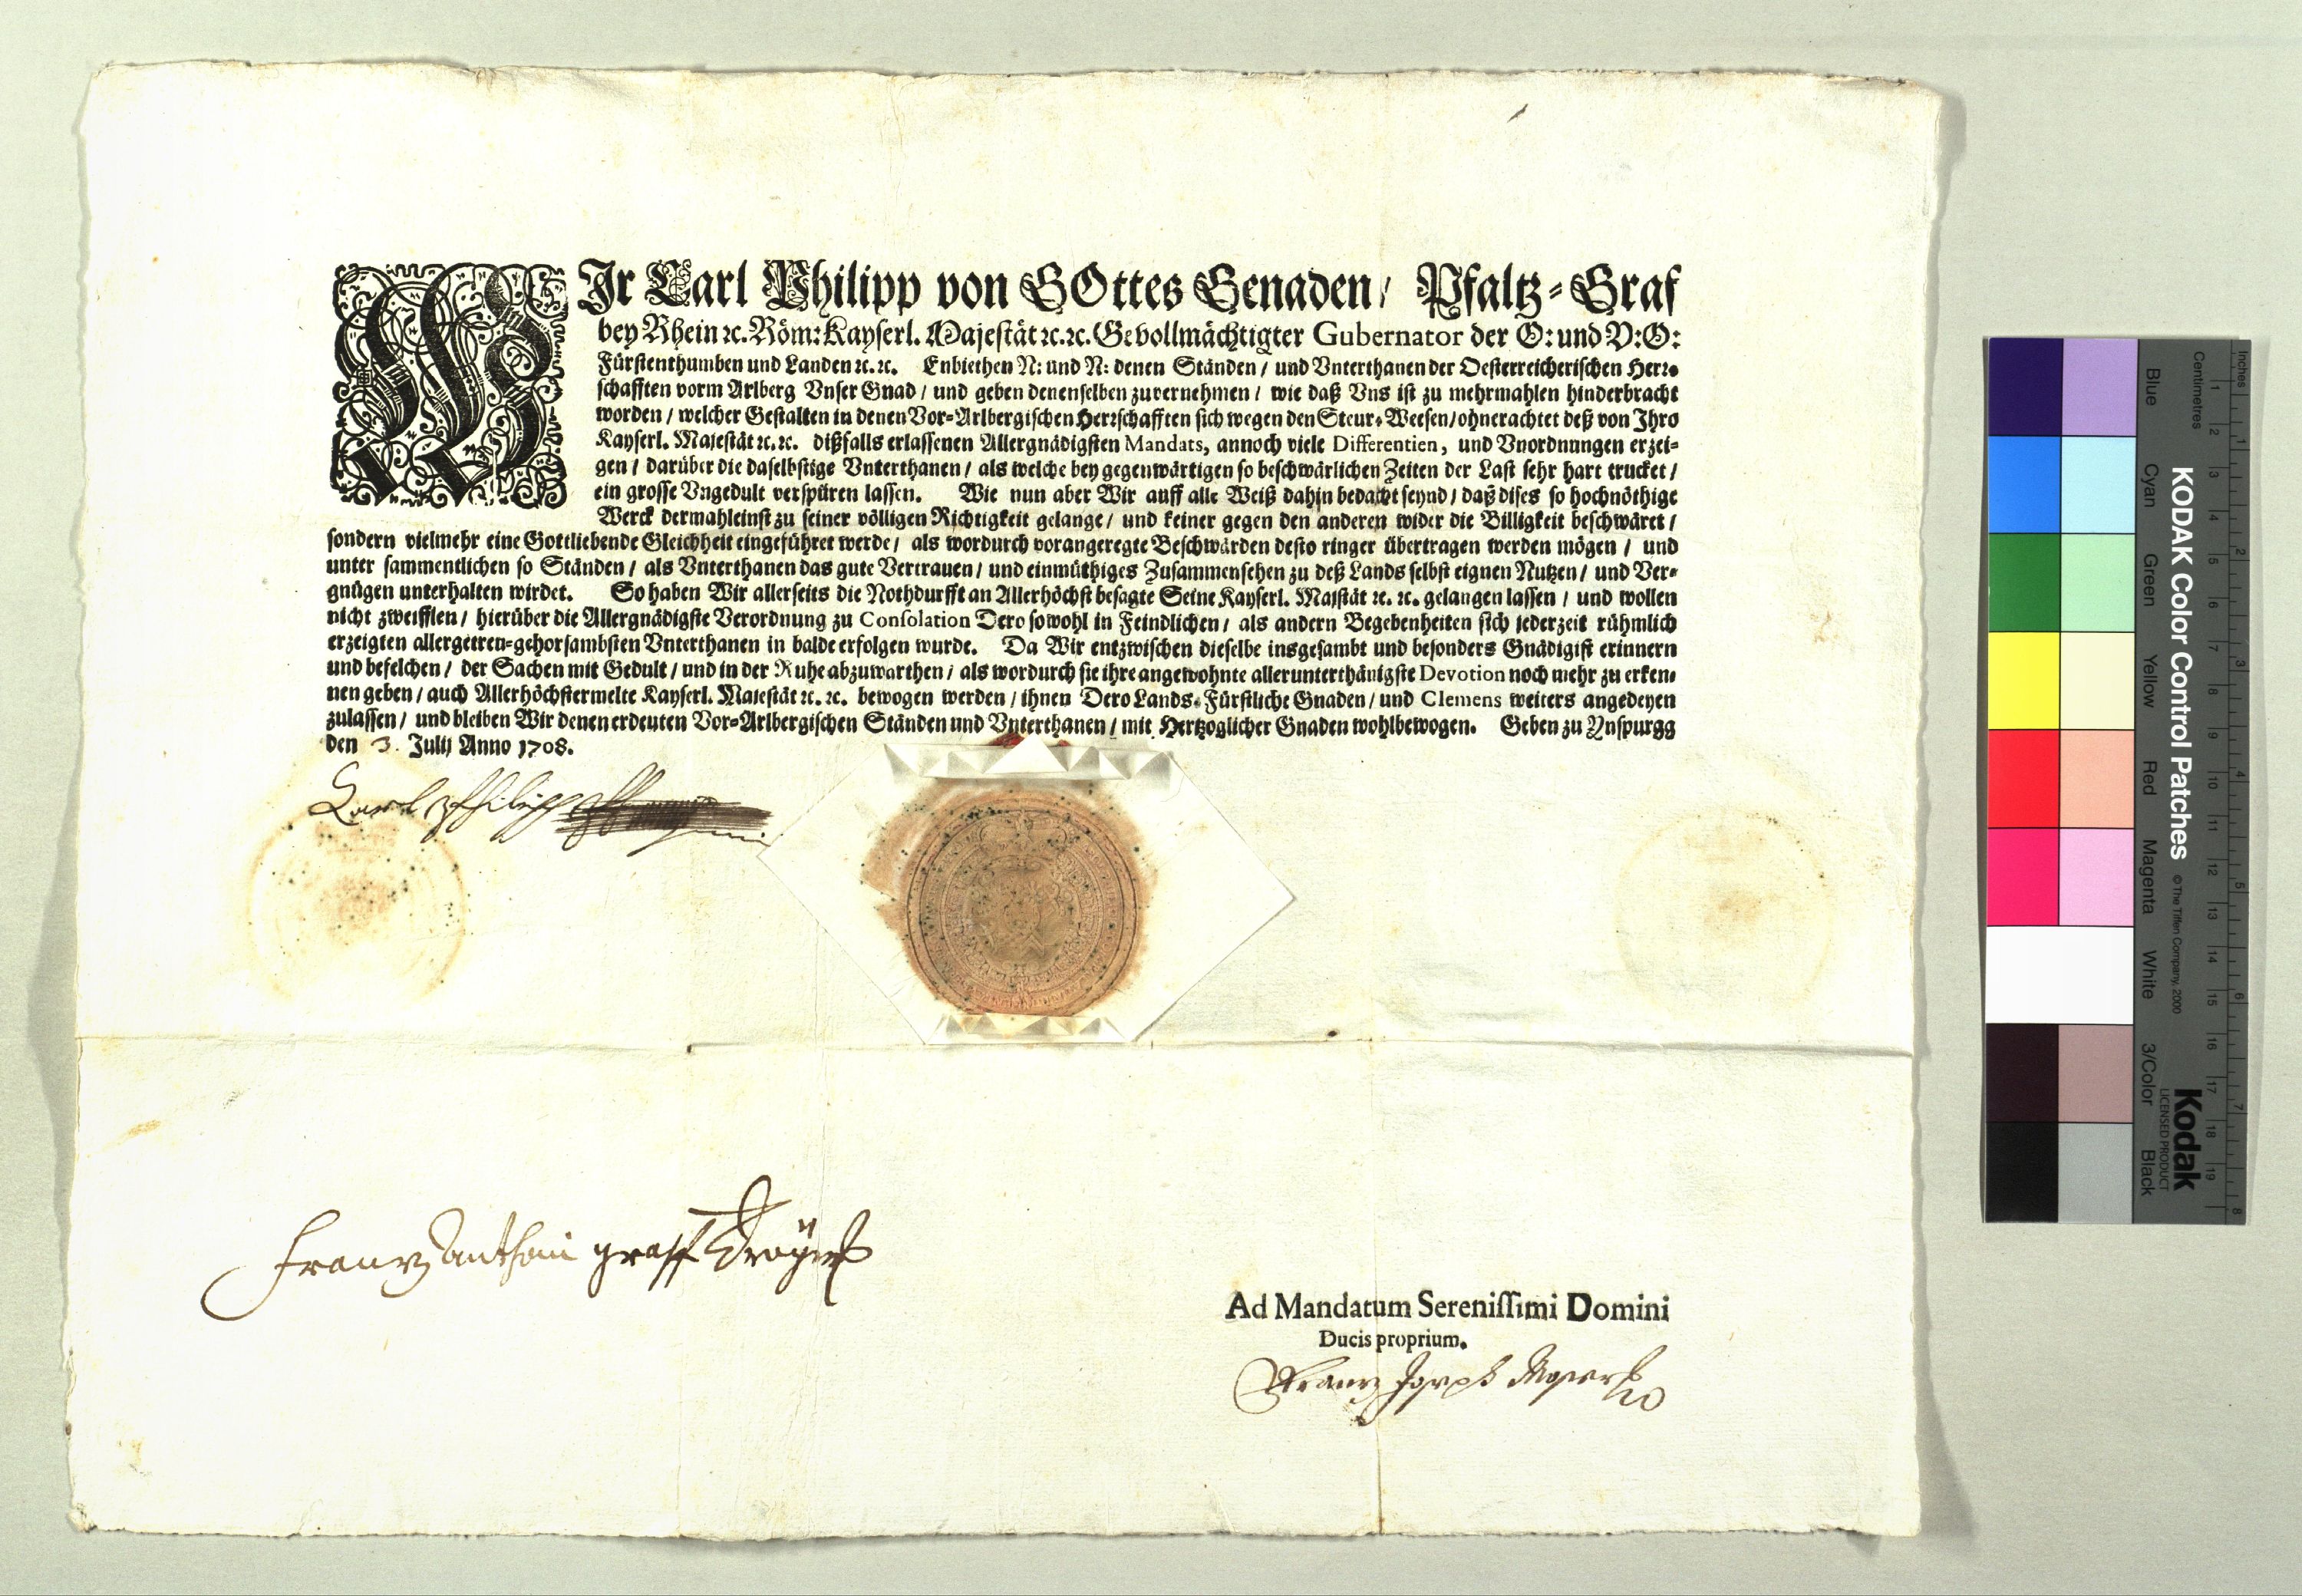 WIr Carl Philipp von GOttes Genaden / Pfaltz=Graf
bey Rhein ꝛc. Röm: Kayserl. Majestät ꝛc. ꝛc. Gevollmächtigter Gubernator der O: und V: O:
Fürstenthumben und Landen ꝛc. ꝛc. Enbiethen N: und N: denen Ständen / und Vnterthanen der Oesterreicherischen Herr=
schafften vorm Arlberg Vnser Gnad / und geben denenselben zuvernehmen / wie daß Vns ist zu mehrmahlen hinderbracht
worden / welcher Gestalten in denen Vor=Arlbergischen Herrschafften sich wegen den Steur=Weesen / ohnerachtet deß von Ihro
Kayserl. Majestät ꝛc. ꝛc. dißfalls erlassenen Allergnädigsten Mandats, annoch viele Differentien, und Vnordnungen erzei=
gen / darüber die daselbstige Vnterthanen / als welche bey gegenwärtigen so beschwärlichen Zeiten der Last sehr hart trucket /
ein grosse Vngedult verspüren lassen. Wie nun aber Wir auff alle Weiß dahin bedacht seynd / daß dises so hochnöthige
Werck dermahleinst zu seiner völligen Richtigkeit gelange / und keiner gegen den anderen wider die Billigkeit beschwäret /
sondern vielmehr eine Gottliebende Gleichheit eingeführet werde / als wordurch vorangeregte Beschwärden desto ringer übertragen werden mögen / und
unter sammentlichen so Ständen / als Vnterthanen das gute Vertrauen / und einmüthiges Zusammensehen zu deß Lands selbst eignen Nutzen / und Ver=
gnügen unterhalten wirdet. So haben Wir allerseits die Nothdurfft an Allerhöchst besagte Seine Kayserl. Majstät ꝛc. ꝛc. gelangen lassen / und wollen
nicht zweifflen / hierüber die Allergnädigste Verordnung zu Consolation Dero sowohl in Feindlichen / als andern Begebenheiten sich jederzeit rühmlich
erzeigten allergetreu=gehorsambsten Vnterthanen in balde erfolgen wurde. Da Wir entzwischen dieselbe insgesambt und besonders Gnädigist erinnern
und befelchen / der Sachen mit Gedult / und in der Ruhe abzuwarthen / als wordurch sie ihre angewohnte allerunterthänigste Devotion noch mehr zu erken=
nen geben / auch Allerhöchstermelte Kayserl. Majestät ꝛc. ꝛc. bewogen werden / ihnen Dero Lands=Fürstliche Gnaden / und Clemens weiters angedeyen
zulassen / und bleiben Wir denen erdeuten Vor=Arlbergischen Ständen und Vnterthanen / mit Hertzoglicher Gnaden wohlbewogen. Geben zu Ynspurgg
den 3. Julij Anno 1708.
Carl Philipp
Frantz Anthoni graff
Ad Mandatum Serenissimi Domini
Ducis proprium.
Frantz Joseph
KODAK Color Control Patches © The Tiffen Company, 2000
Kodak
LICENSED PRODUCT
Inches
Centimetres
Blue Cyan Green Yellow Red Magenta White 3/Color Black
1 2 3 4 5 6 7 8
1 2 3 4 5 6 7 8 9 10 11 12 13 14 15 16 17 18 19